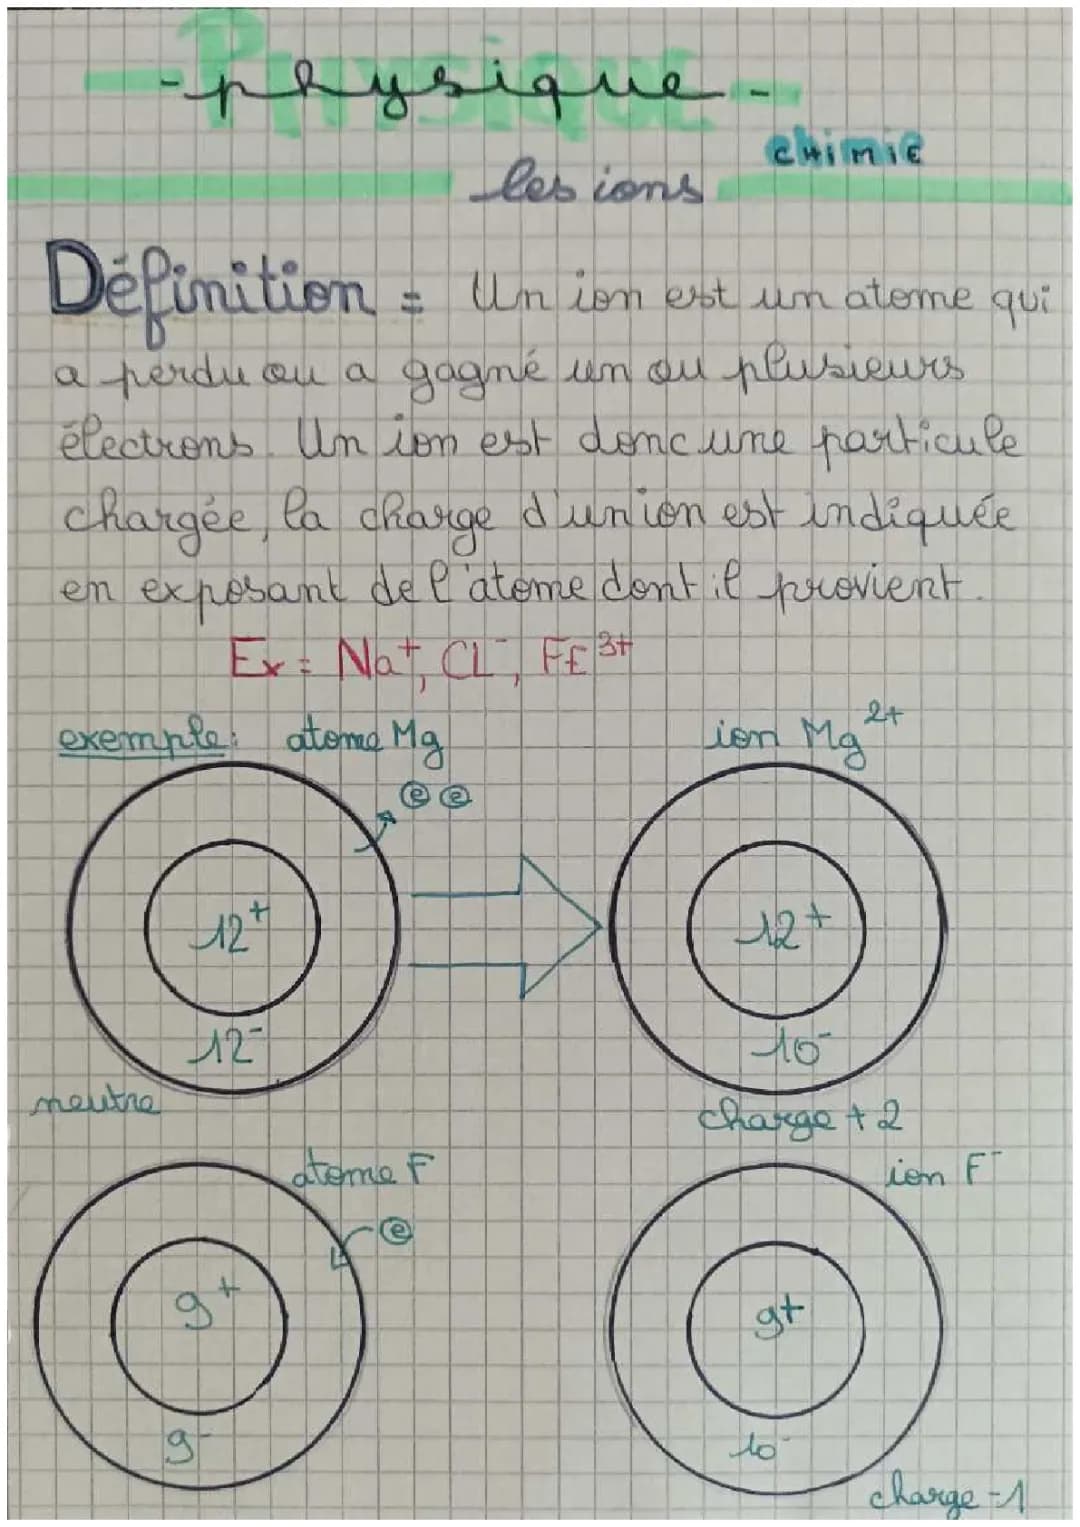 Physique
- physique -
chimie
les ions
Définition = Un ion est un atome qui
a perdu ou a gagné un ou plusieurs
électrons. Un ion est donc une particule
chargée, la charge d'un ion est indiquée
en exposant de l'atome dont il provient.
Ex = Na⁺, CL⁻, FE³⁺
exemple: atome Mg
ion Mg²⁺
e e
12⁺
12⁻
neutre
12⁺
10⁻
charge +2
atome F
e
9⁺
9⁻
ion F⁻
9⁺
10⁻
charge -1